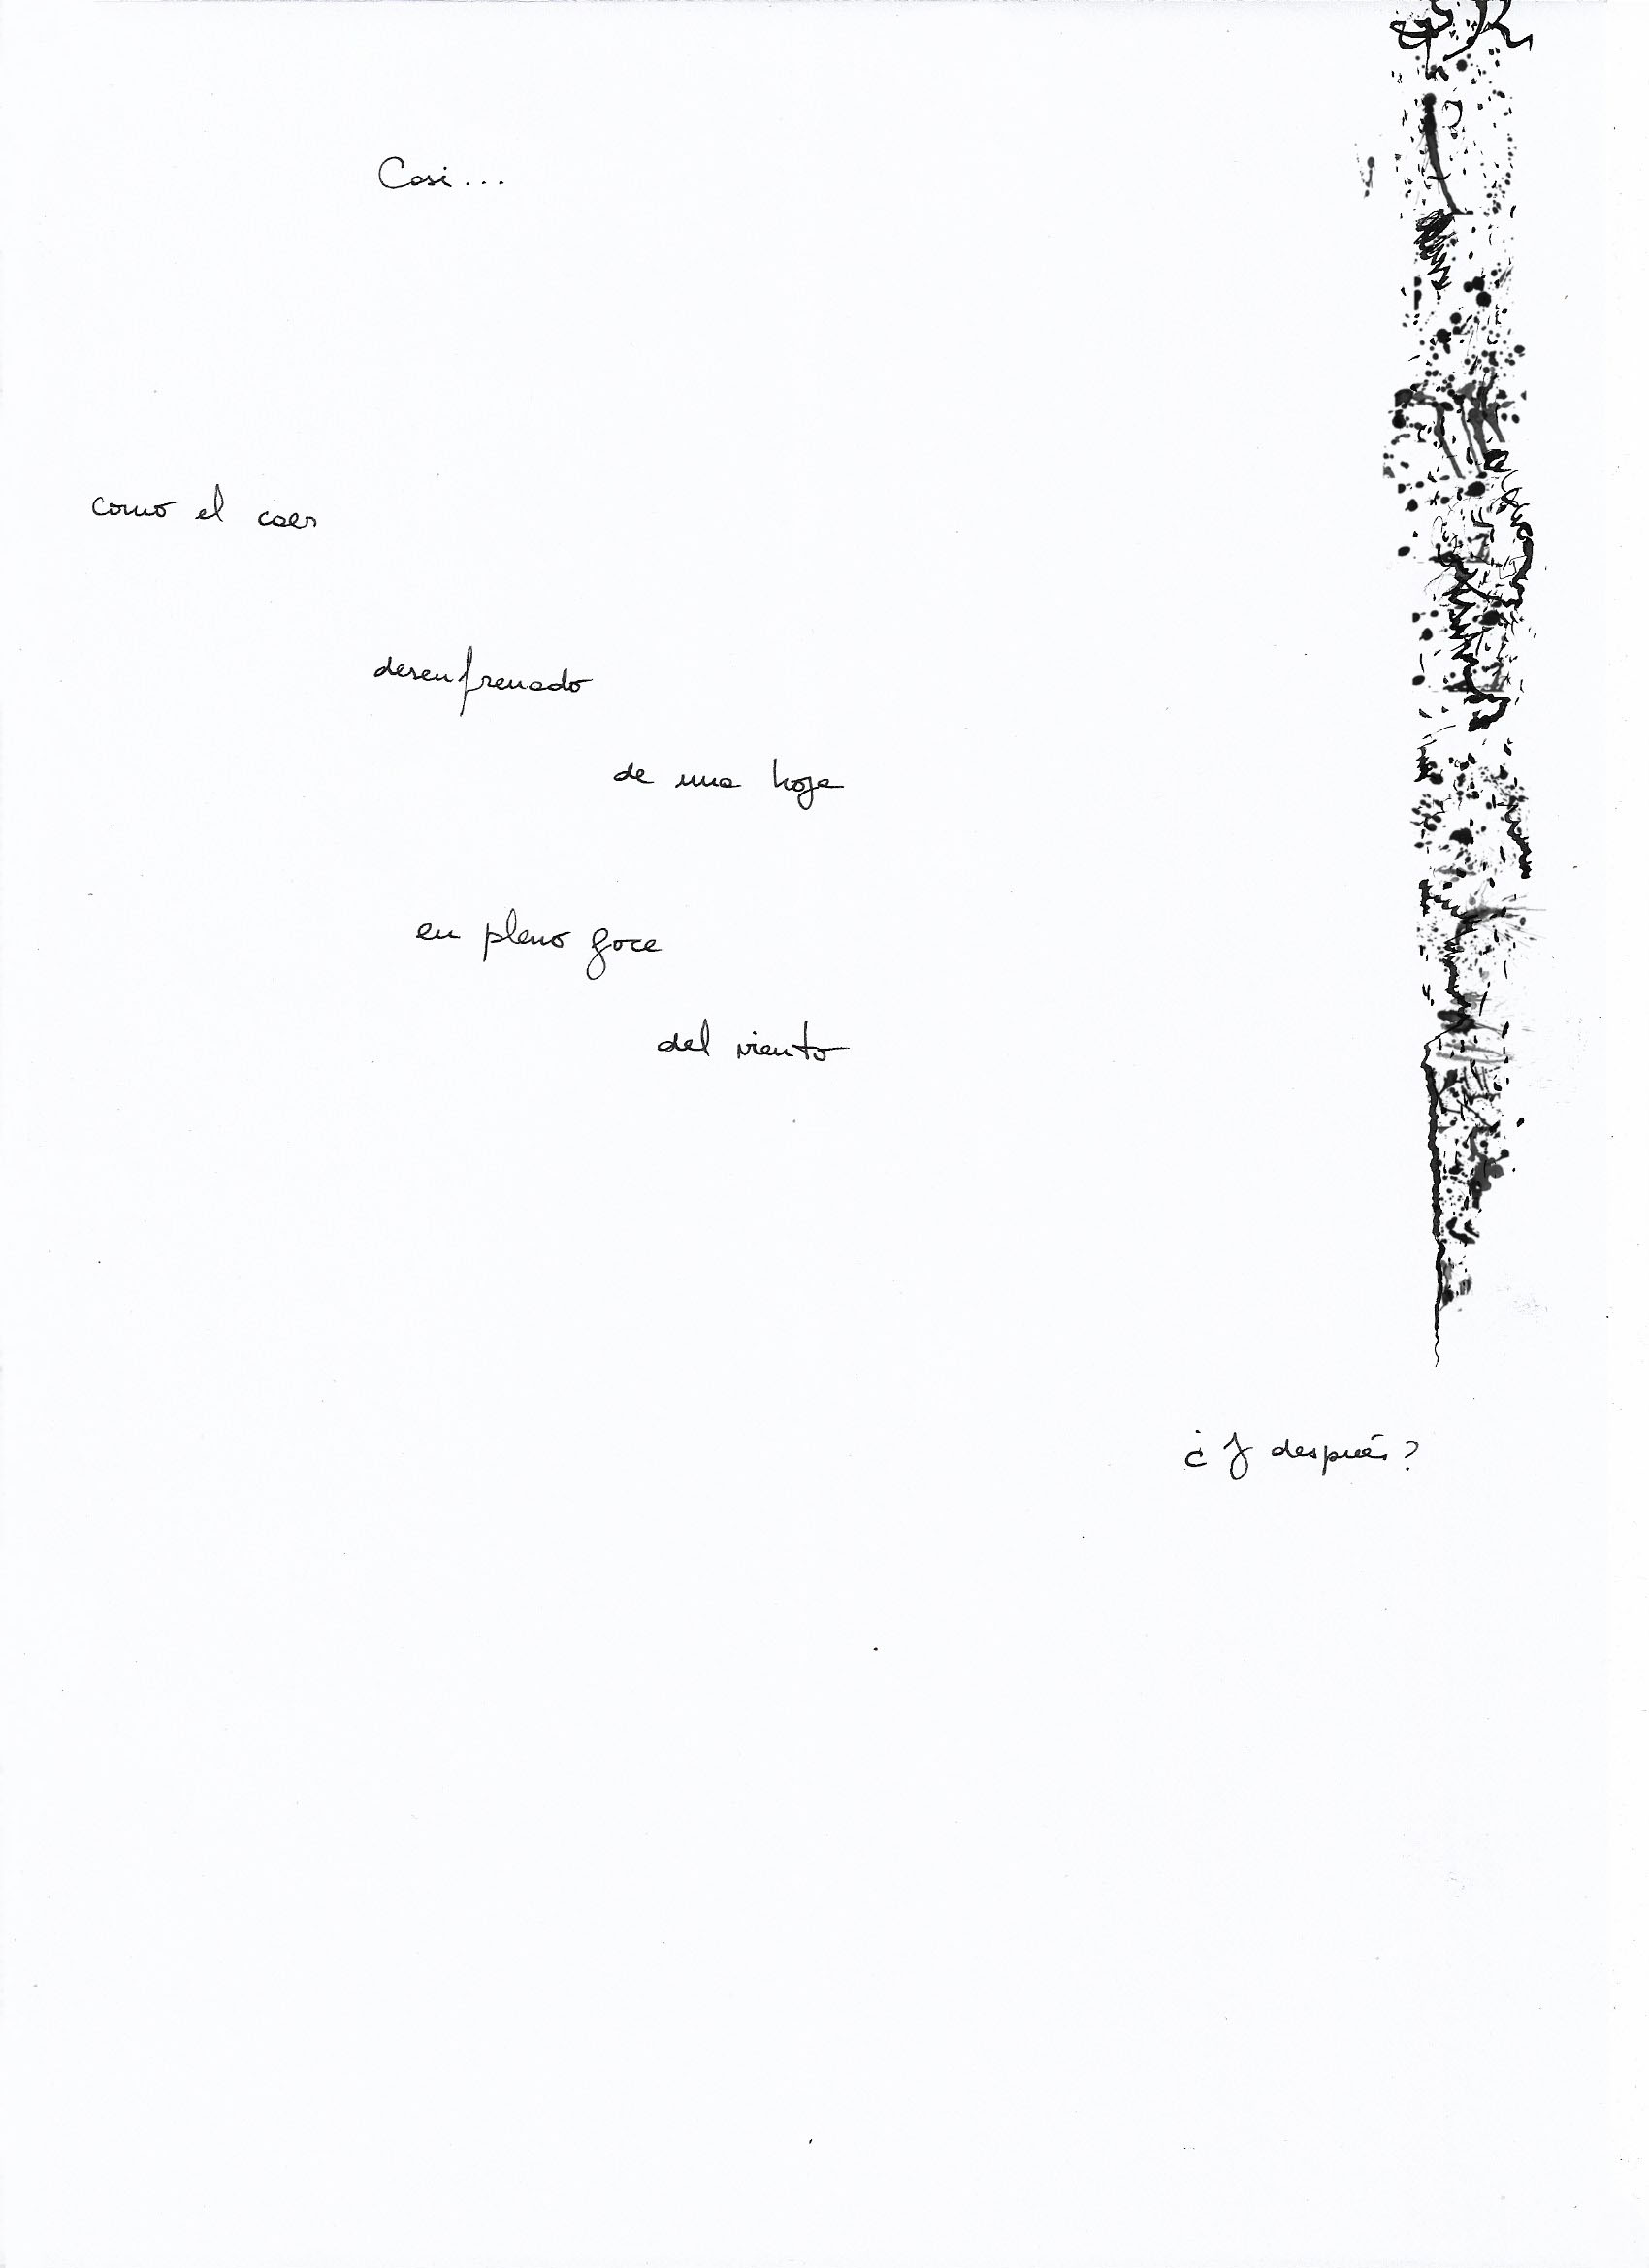 Casi...
como el caer
desenfrenado
de una hoja
en pleno goce
del viento
¿Y después?